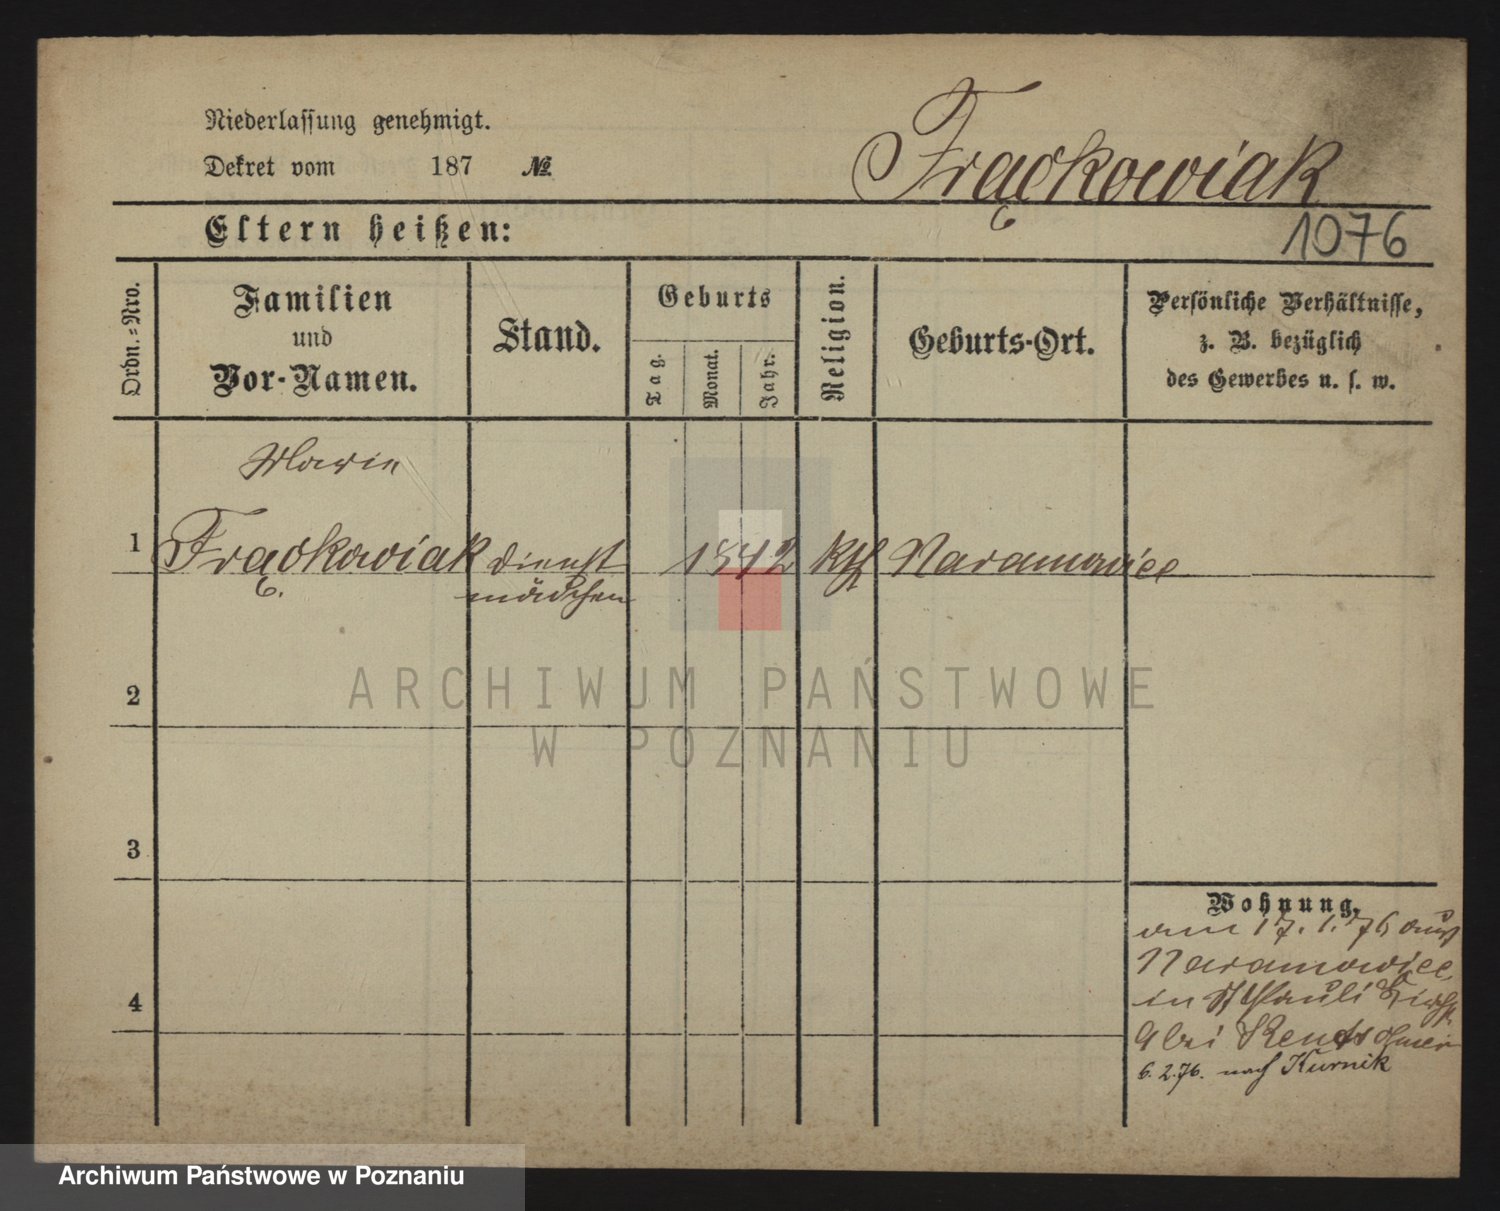 Niederlassung genehmigt.
Dekret vom 187 №
Frąckowiak
Eltern heißen:
1076
Ordn.=Nro.
Familien
und
Vor-Namen.
Stand.
Geburts
Tag.
Monat.
Jahr.
Religion.
Geburts-Ort.
Persönliche Verhältnisse,
z. B. bezüglich
des Gewerbes u. s. w.
Marie
1 Frąckowiak Dienst 1842 kth Naramowice
mädchen
2
ARCHIWUM PAŃSTWOWE
W POZNANIU
3
Wohnung.
am 17. 1. 76 aus
Naramowice
in St Pauli Kirchst
9 bei
4
6. 2. 76. nach Kurnik
Archiwum Państwowe w Poznaniu